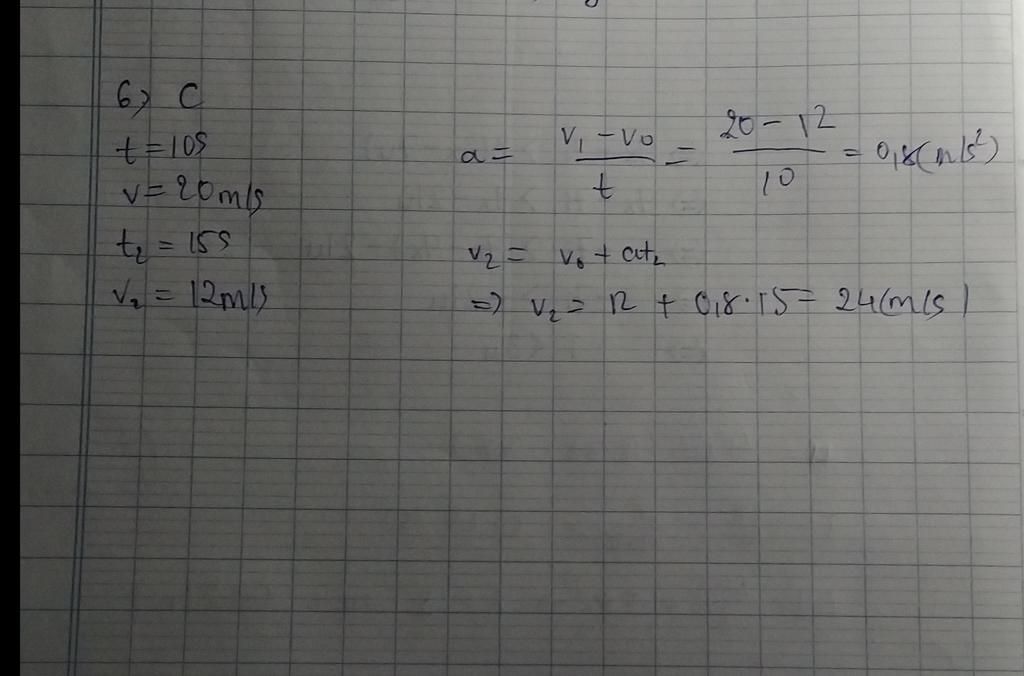 6) C
t = 10s
v = 20 m/s
t₂ = 15s
v₂ = 12m/s
a = \frac{v₁ - v₀}{t} = \frac{20 - 12}{10} = 0,8 (m/s²)
v₂ = v₀ + at₂
=> v₂ = 12 + 0,8 · 15 = 24 (m/s)